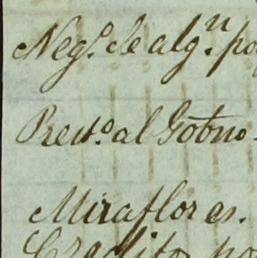 Neg.º de alg.n po
Prest.o al Gobno.
Miraflores.
Credito po